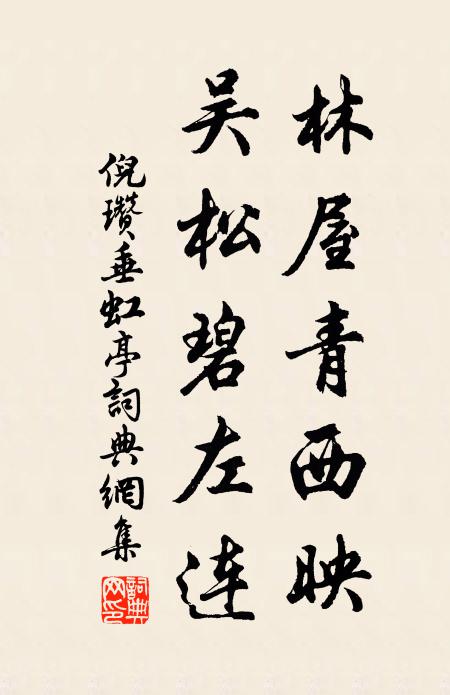 林屋青西映
吴松碧左连
倪瓚垂虹亭詞典網集
詞典網印